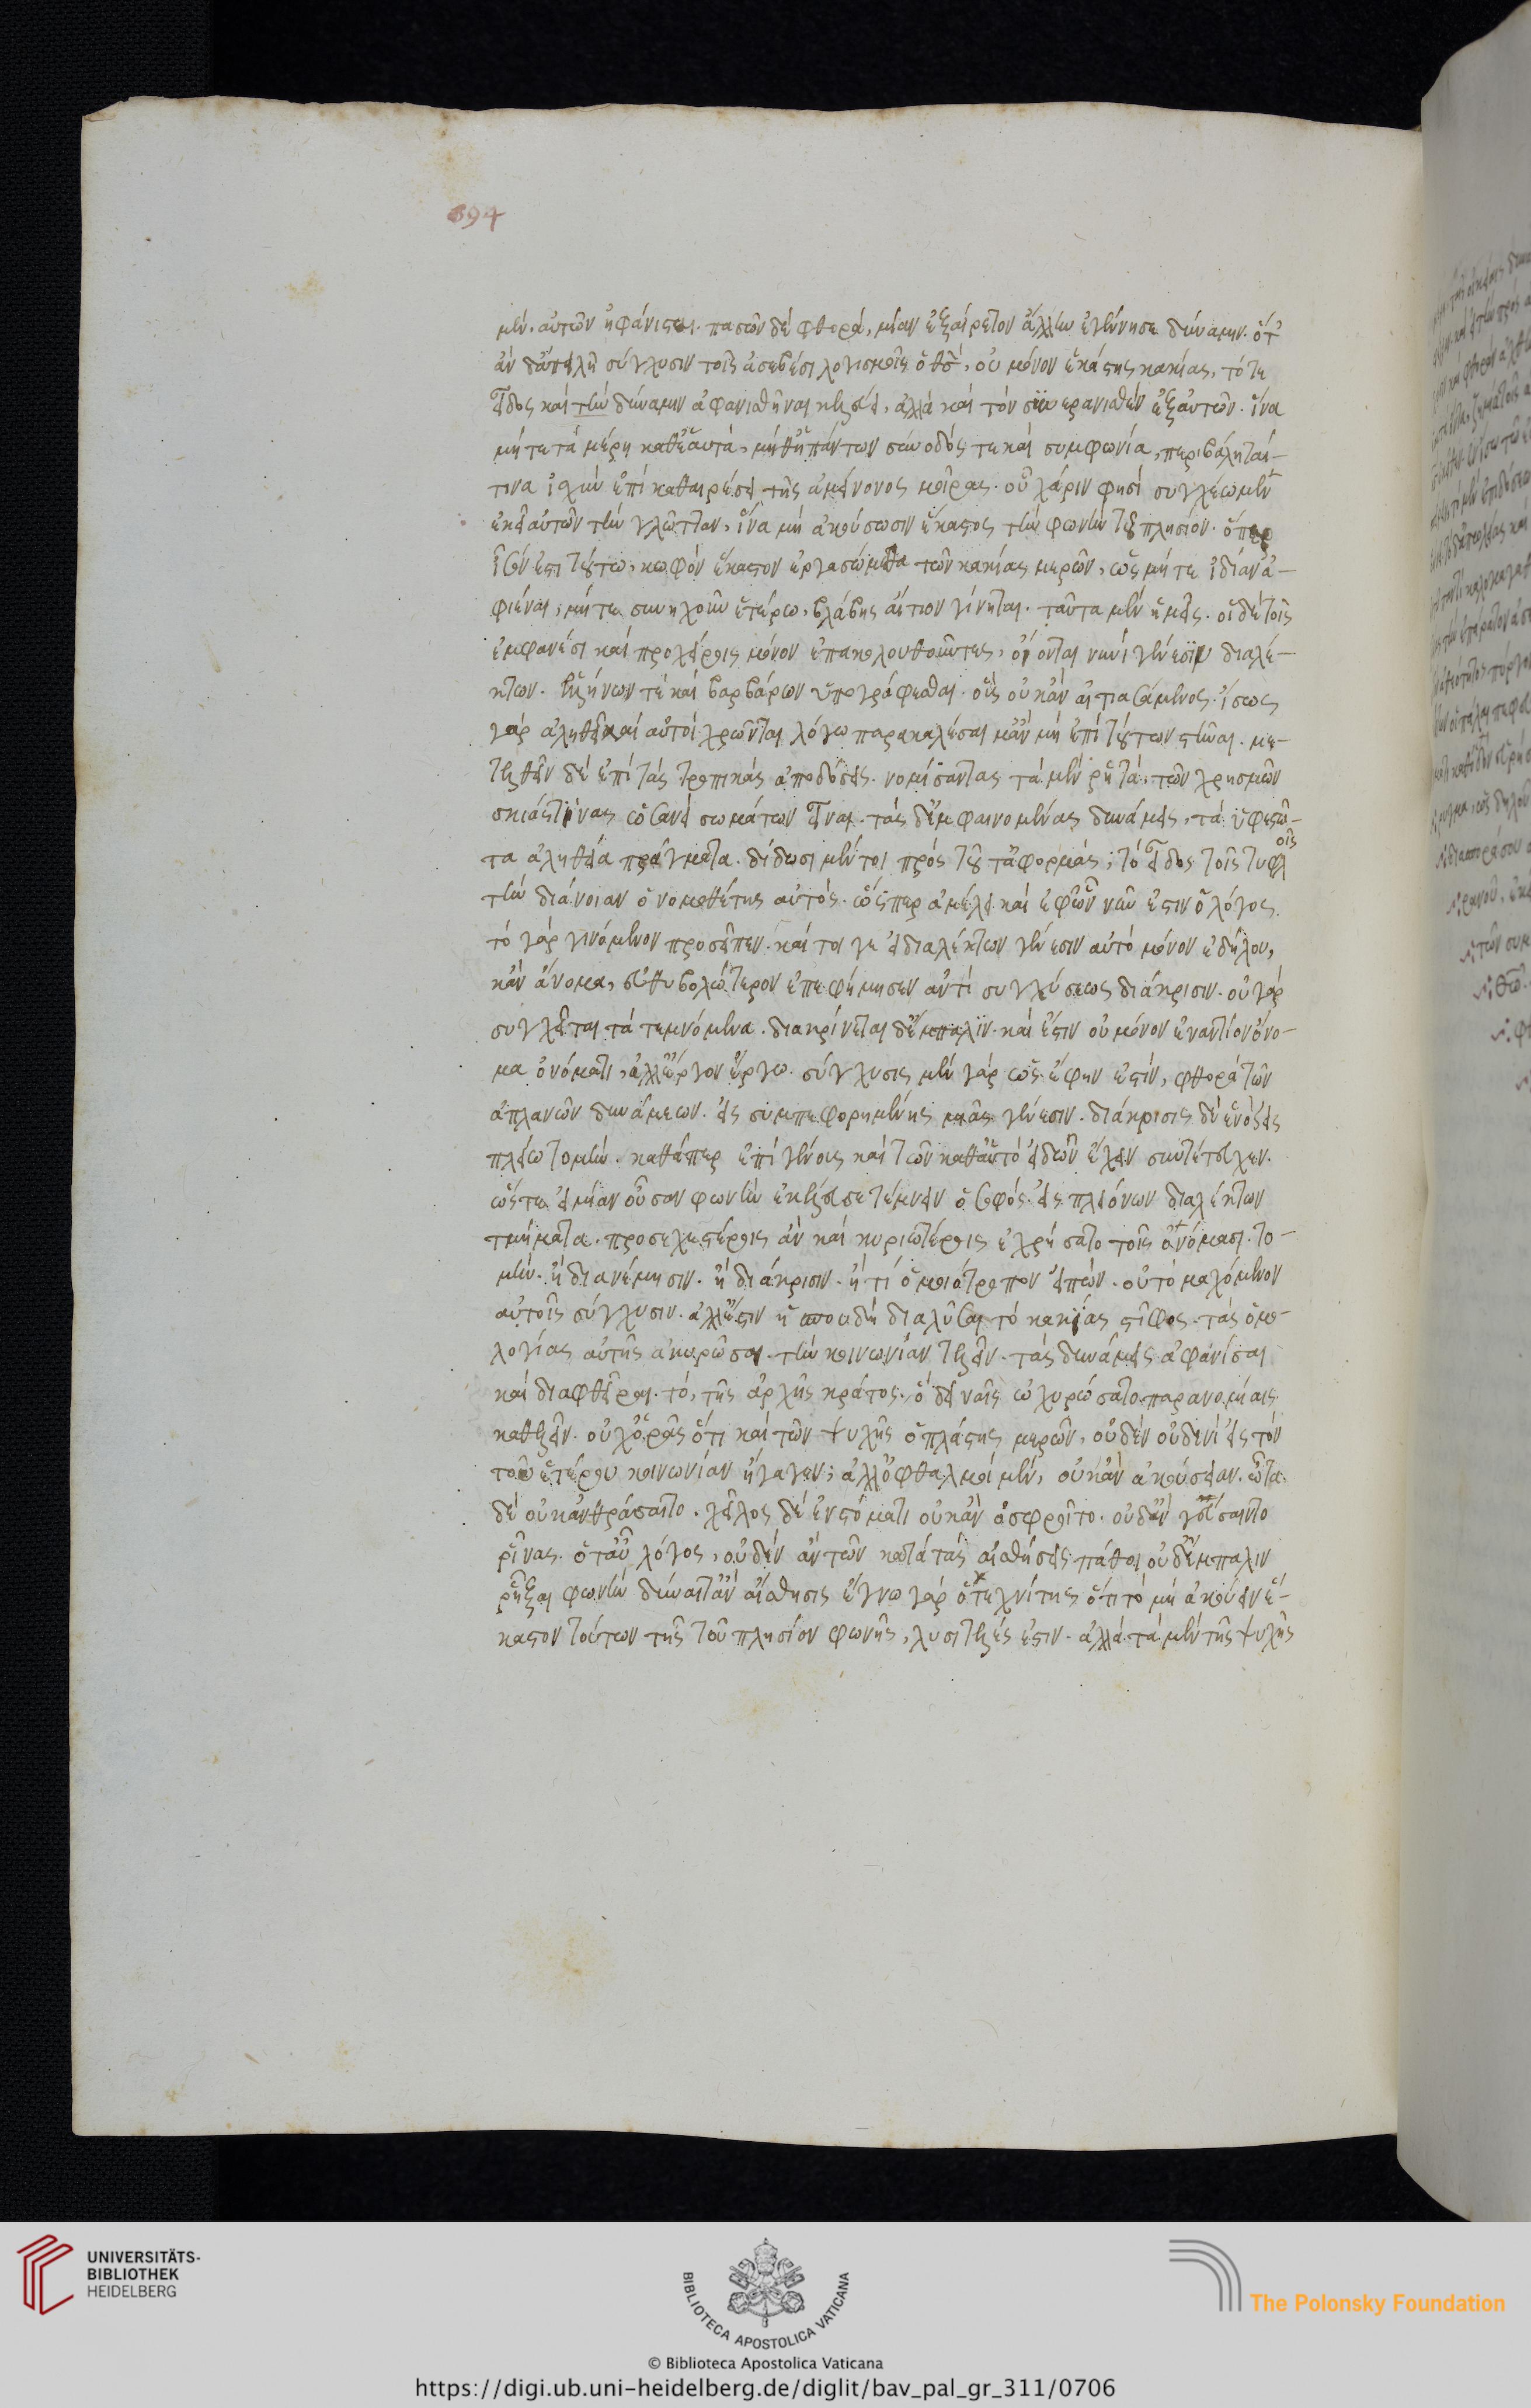 694
μὲν, αὐτῶν ἠφάνισται. πασῶν δὲ φθορὰ, μίαν ἐξαίρετον ἄλλην ἐγέννησε δύναμιν. ὅτ'
ἂν δ' ἀπειλῇ σύγχυσιν τοῖς ἀσεβέσι λογισμοῖς ὁ θσ, οὐ μόνον ἑκάστης κακίας, τό τε
εἶδος καὶ τὴν δύναμιν ἀφανισθῆναι κελεύει, ἀλλὰ καὶ τὸν συνερανισθὲν ἐξ αὐτῶν. ἵνα
μήτε τὰ μέρη καθ' ἑαυτὰ, μήθ' ἡ πάντων σύνοδός τε καὶ συμφωνία, περιβάληταί-
τινα ἰσχὺν ἐπὶ καθαιρέσει τῆς ἀμείνονος μοίρας. οὗ χάριν φησὶ συγχέωμεν
ἐκεῖ αὐτῶν τὴν γλῶτταν, ἵνα μὴ ἀκούσωσιν ἕκαστος τὴν φωνὴν τοῦ πλησίον. ὅπερ
ἴσόν ἐστι τούτω, κωφὸν ἕκαστον ἐργασώμεθα τῶν κακίας μερῶν, ὡς μήτε ἰδίαν ἀ-
φιέναι, μήτε συνηχοῦν ἑτέρω, βλάβης αἴτιον γίνηται. ταῦτα μὲν ἡμεῖς. οἱ δὲ τοῖς
ἐμφανέσι καὶ προχείροις μόνον ἐπακολουθοῦντες, οἴονται νυνὶ γένεσιν διαλέ-
κτων. ἑλλήνων τὲ καὶ βαρβάρων ὑπογράφεσθαι. οὓς οὐκ ἂν αἰτιασάμενος. ἴσως
γὰρ ἀληθεῖ καὶ αὐτοὶ χρῶνται λόγω παρακαλέσαι μ' ἂν μὴ ἐπὶ τούτων στῆναι. με-
τελθεῖν δὲ ἐπὶ τὰς τροπικὰς ἀποδόσεις. νομίσαντας τὰ μὲν ῥητὰ, τῶν χρησμῶν
σκιάς τινας ὡσανεὶ σωμάτων εἶναι. τὰς δ' ἐμφαινομένας δυνάμεις, τὰ ὑφεστῶ-
τα ἀληθεία πράγματα. δίδωσι μέντοι πρὸς τοῦτ' ἀφορμὰς, τὸ εἶδος τοῖς τυφλοῖς
τὴν διάνοιαν ὁ νομοθέτης αὐτός. ὥσπερ ἀμέλει καὶ ἐφ' ὧν νῦν ἐστιν ὁ λόγος.
τὸ γὰρ γινόμενον προσεῖπεν. καίτοι γε εἰ διαλέκτων γένεσιν αὐτὸ μόνον ἐδήλου,
κἂν ὄνομα, εὐθυβολώτερον ἐπεφήμησεν ἀντὶ συγχύσεως διάκρισιν. οὐ γὰρ
συγχεῖται τὰ τεμνόμενα. διακρίνεται δ' ἔμπαλιν. καὶ ἔστιν οὐ μόνον ἐναντίον ὄνο-
μα ὀνόματι, ἀλλ' ἔργον ἔργω. σύγχυσις μὲν γὰρ ὡς ἔφην ἐστὶν, φθορὰ τῶν
ἁπλανῶν δυνάμεων. εἰς συμπεφορημένης μιᾶς γένεσιν. διάκρισις δὲ ἑνὸς εἰς
πλείω τομήν. καθάπερ ἐπὶ γένους καὶ τῶν κατ' αὐτὸ εἰδῶν ἔχειν συντέτυχεν.
ὥστε εἰ μίαν οὖσαν φωνὴν ἐκέλευσε τέμνειν ὁ σοφός. εἰς πλειόνων διαλέκτων
τμήματα. προσεχεστέροις ἂν καὶ κυριωτέροις ἐχρήσατο τοῖς ὀνόμασι. το-
μὴν. ἢ διανέμησιν. ἢ διάκρισιν. ἤ τι ὁμοιότροπον εἰπών. οὐ τὸ μαχόμενον
αὐτοῖς σύγχυσιν. ἀλλ' ἔστιν ἡ σπουδὴ διαλῦσαι τὸ κακίας στῖφος. τὰς ὁμο-
λογίας αὐτῆς ἀκυρῶσαι. τὴν κοινωνίαν ἀνελεῖν. τὰς δυνάμεις ἀφανίσαι
καὶ διαφθεῖραι. τὸ, τῆς ἀρχῆς κράτος. ὃ δειναῖς ὠχυρώσατο παρανομίαις
καθελεῖν. οὐχ ὁρᾷς ὅτι καὶ τῶν ψυχῆς ὁ πλάστης μερῶν, οὐδὲν οὐδενὶ εἰς τὴν
τοῦ ἑτέρου κοινωνίαν ἤγαγεν; ἀλλ' ὀφθαλμοὶ μὲν, οὐκ ἂν ἀκούσειαν. ὦτα
δὲ οὐκ ἂν θεάσαιτο. χείλος δὲ ἐν στόματι οὐκ ἂν ὀσφροῖτο. οὐδ' ἂν γεύσαιντο
ῥῖνας. ὅτ' αὖ λόγος, οὐδὲν ἂν τῶν κατὰ τὰς αἰσθήσεις πάθοι οὐδ' ἔμπαλιν
ῥῆξαι φωνὴν δύναιτ' ἂν αἴσθησις ἔγνω γὰρ ὁ τεχνίτης ὅτι τὸ μὴ ἀκούειν ἕ-
καστον τούτων τῆς τοῦ πλησίον φωνῆς, λυσιτελές ἐστιν. ἀλλὰ τὰ μὲν τῆς ψυχῆς
UNIVERSITÄTS-
BIBLIOTHEK
HEIDELBERG
BIBLIOTECA APOSTOLICA VATICANA
The Polonsky Foundation
© Biblioteca Apostolica Vaticana
https://digi.ub.uni-heidelberg.de/diglit/bav_pal_gr_311/0706